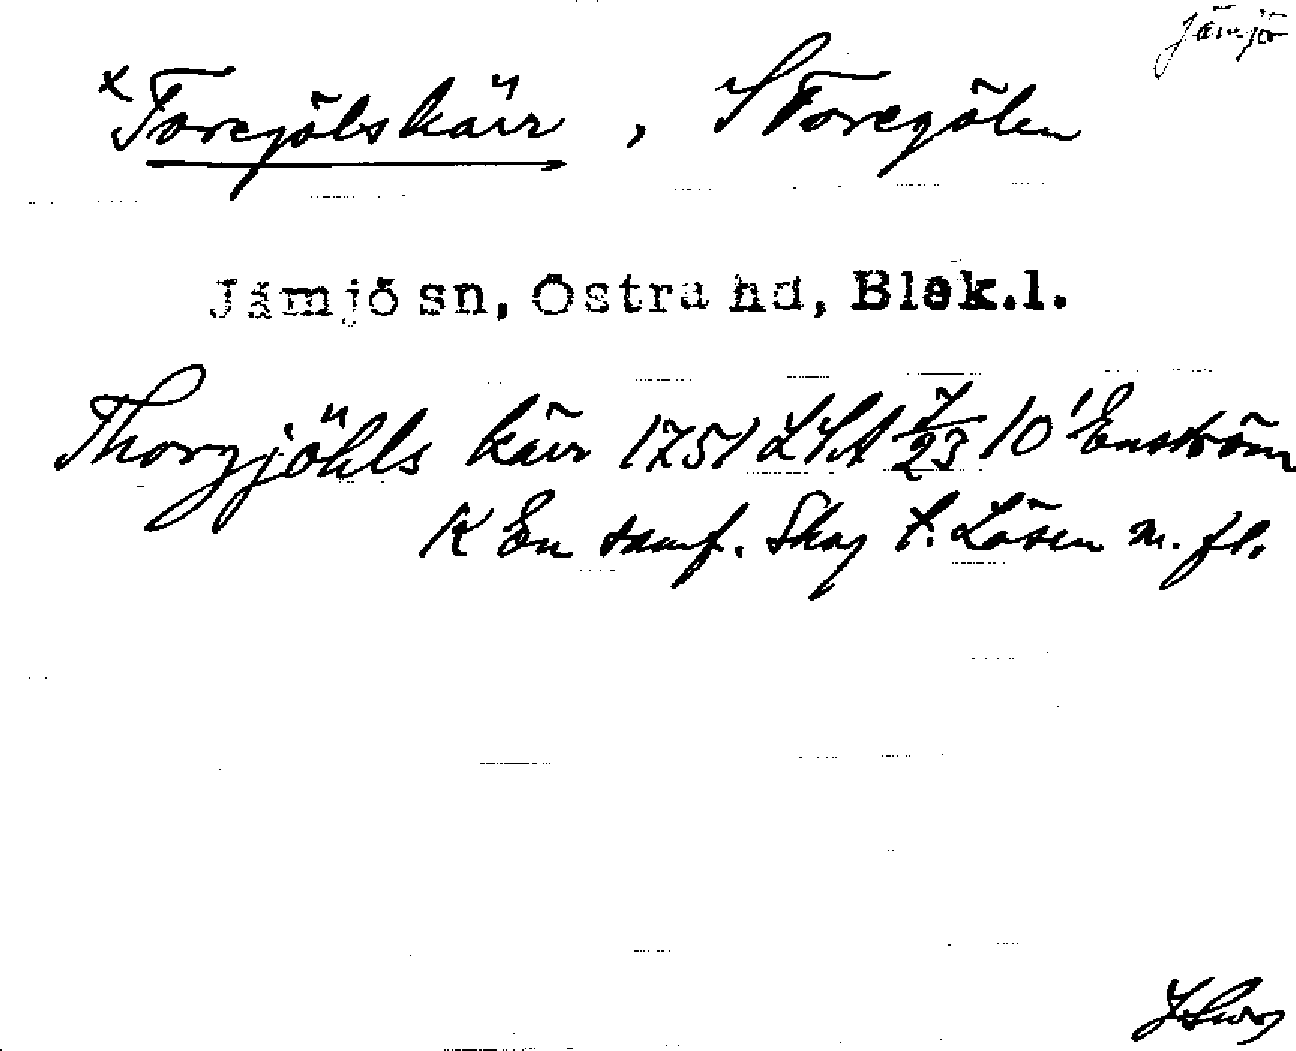 Jämjö
x Toregölskärr, S Toregölen
Jämjö sn, Östra hd, Blek.l.
Thorgjöhls kärr 1751 LSA 7/23 10 Enström
K En samf. Skog t. Lösen m. fl.